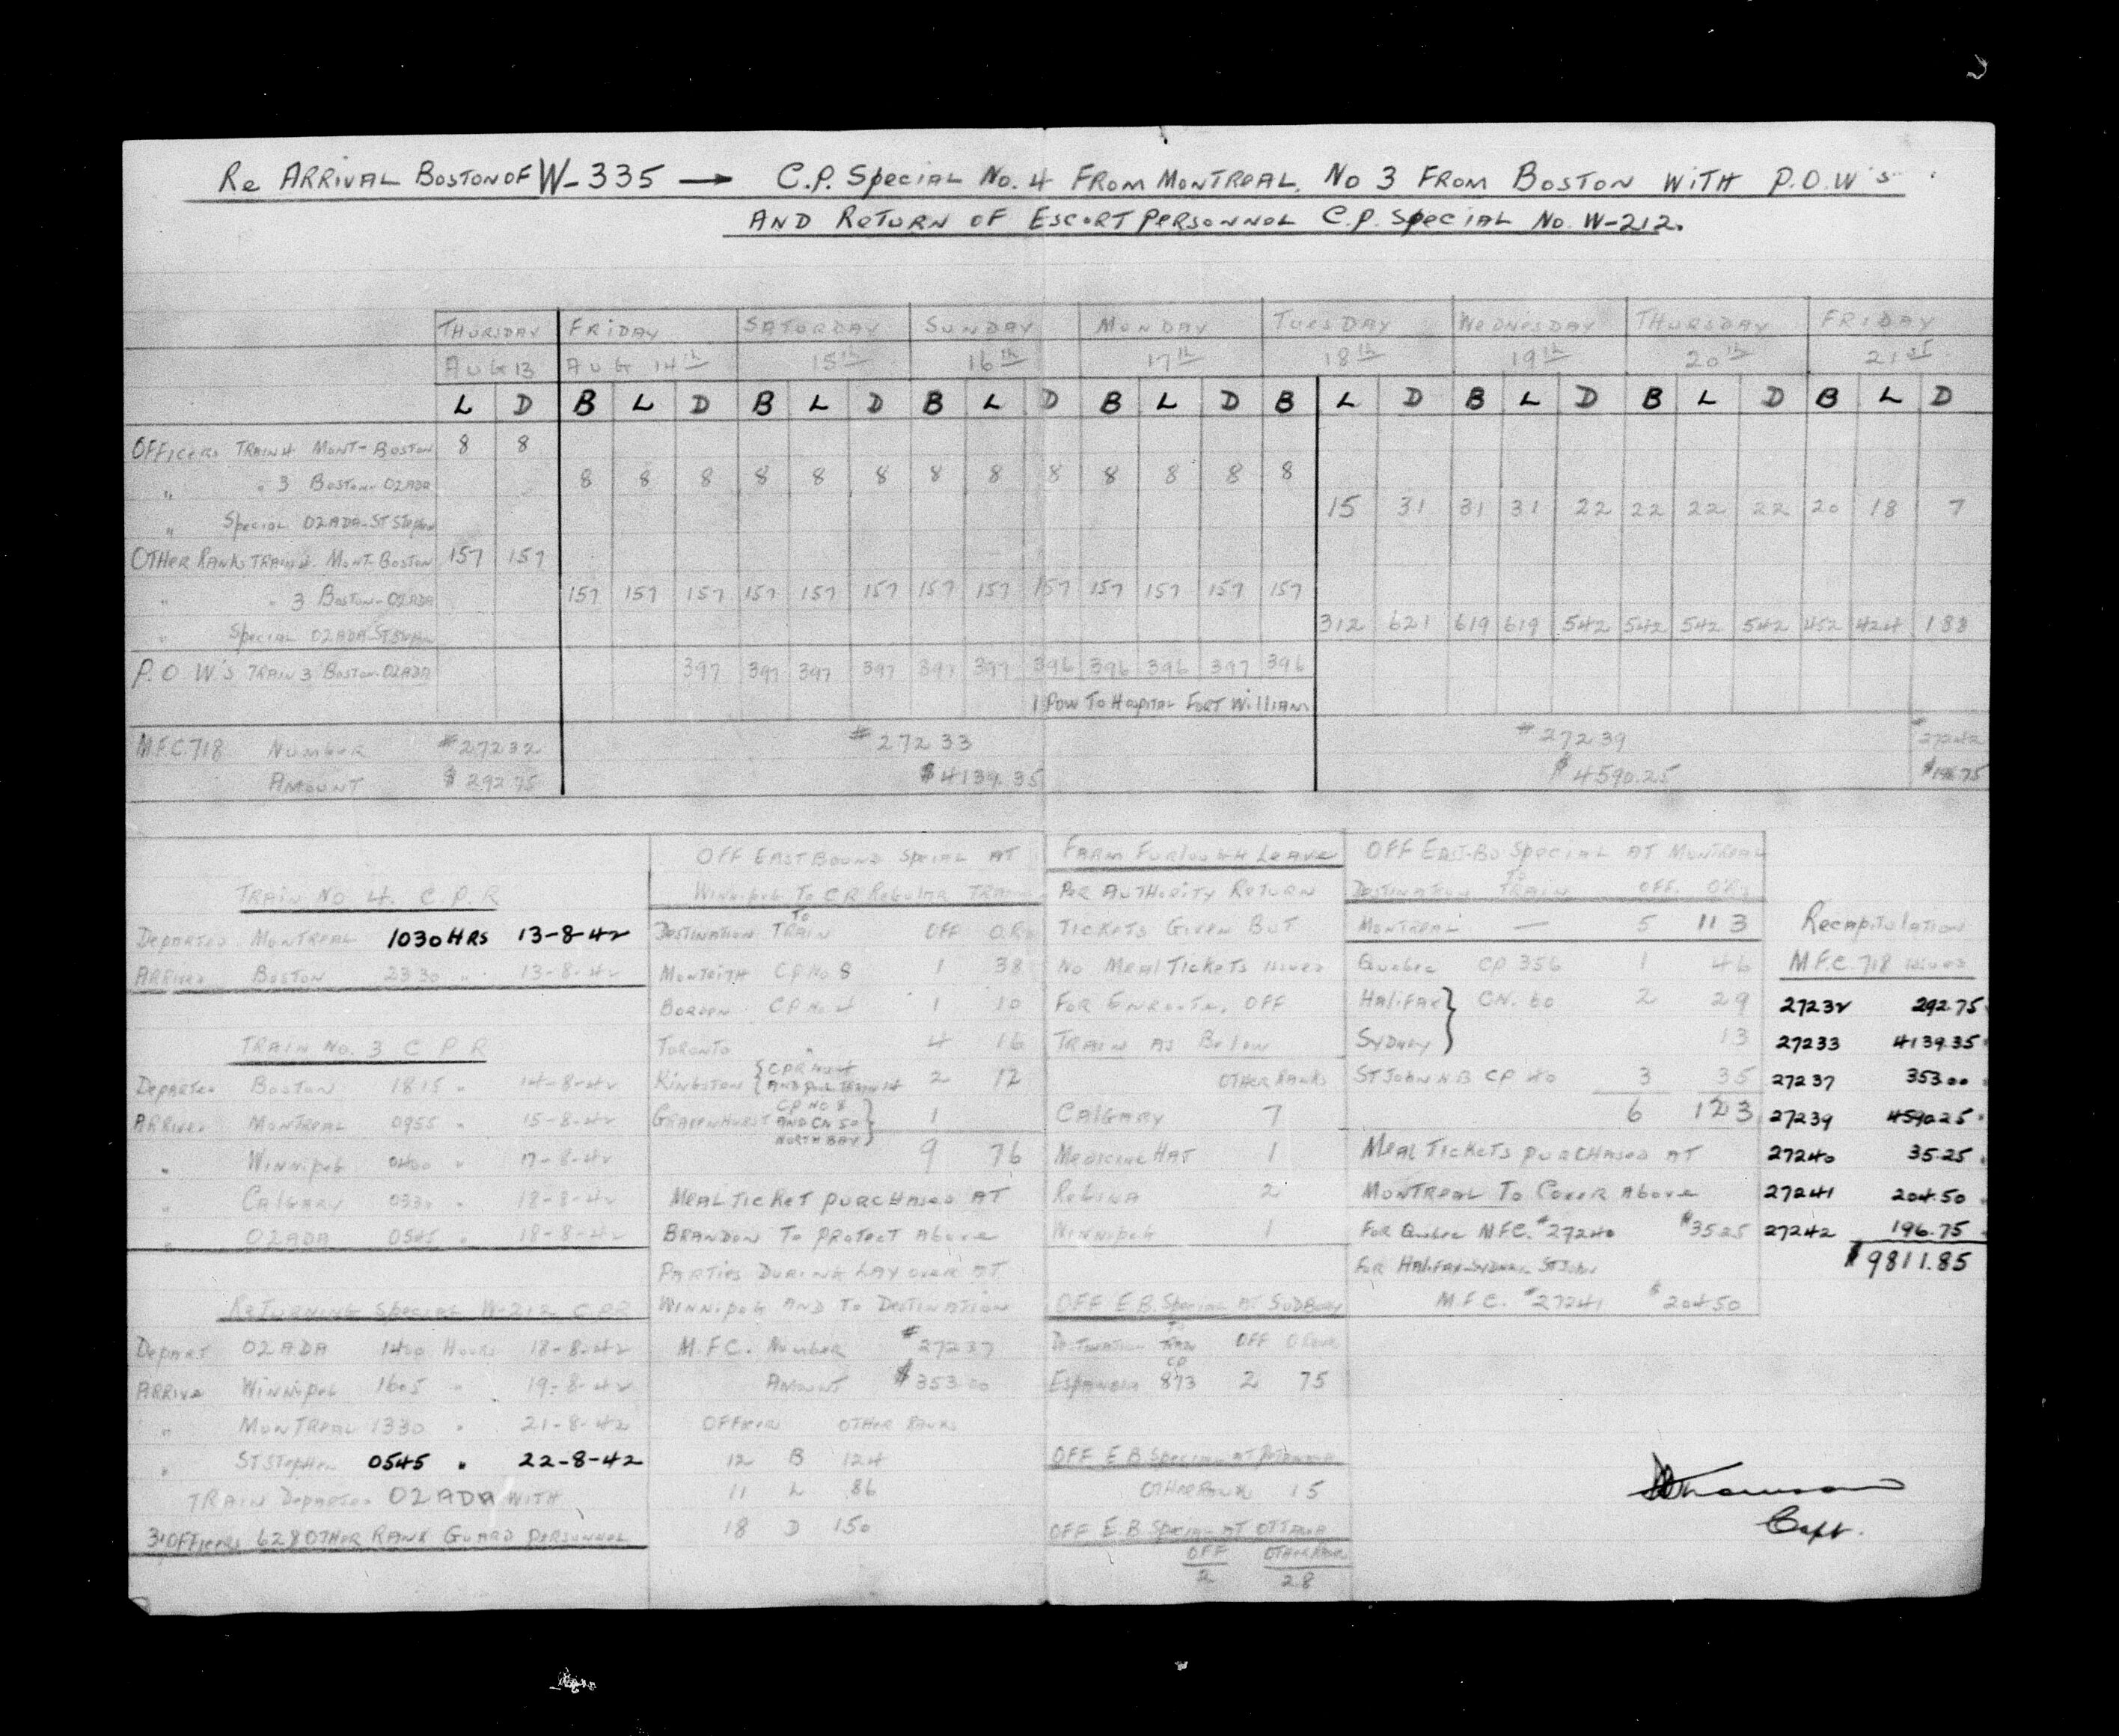 Re ARRIVAL BOSTON OF W-335 → C.P. SPECIAL No. 4 FROM MONTREAL, No 3 FROM BOSTON WITH P.O.W's
AND RETURN OF ESCORT PERSONNOL C.P. SPECIAL No. W-212.
THURSDAY FRIDAY SATURDAY SUNDAY MONDAY TUESDAY WEDNESDAY THURSDAY FRIDAY
AUG 13 AUG 14th 15th 16th 17th 18th 19th 20th 21st
L D B L D B L D B L D B L D B L D B L D B L D B L D
OFFICERS TRAIN 4 MONT-BOSTON 8 8
" " 3 BOSTON-OZADA 8 8 8 8 8 8 8 8 8 8 8 8 8
" SPECIAL OZADA-ST STEPHEN 15 31 31 31 22 22 22 22 20 18 7
OTHER RANKS TRAIN 4. MONT-BOSTON 157 157
" " 3 BOSTON-OZADA 157 157 157 157 157 157 157 157 157 157 157 157 157
" SPECIAL OZADA-ST STEPHEN 312 621 619 619 542 542 542 542 452 424 188
P.O.W'S TRAIN 3 BOSTON-OZADA 397 397 397 397 397 397 396 396 396 397 396
1 POW TO HOSPITAL FORT WILLIAM
M.F.C. 718 NUMBER #27232 #27233 #27239 #27242
AMOUNT $292.75 $4139.35 $4590.25 $196.75
TRAIN NO 4. C.P.R
DEPARTED MONTREAL 1030 HRS 13-8-42
ARRIVED BOSTON 2330 " 13-8-42
TRAIN NO. 3 C P R
DEPARTED BOSTON 1815 " 14-8-42
ARRIVED MONTREAL 0955 " 15-8-42
" WINNIPEG 0400 " 17-8-42
" CALGARY 0330 " 18-8-42
" OZADA 0545 " 18-8-42
RETURNING SPECIAL W-212 CPR
DEPART OZADA 1400 HOURS 18-8-42
ARRIVE WINNIPEG 1605 " 19-8-42
" MONTREAL 1330 " 21-8-42
" ST STEPHEN 0545 " 22-8-42
TRAIN DEPARTED OZADA WITH
31 OFFICERS 628 OTHER RANK GUARD PERSONNEL
OFF EASTBOUND SPECIAL AT
WINNIPEG TO C.P. REGULAR TRAINS
DESTINATION TO TRAIN OFF O.Rs
MONTEITH C.P. No 8 1 38
BORDEN C P No 4 1 10
TORONTO " 4 16
KINGSTON { C.P.R No 4 AND TRAIN 14 2 12
GRAVENHURST C P NO 8 AND CN 50 NORTH BAY } 1
9 76
MEAL TICKET PURCHASED AT
BRANDON TO PROTECT ABOVE
PARTIES DURING LAYOVER AT
WINNIPEG AND TO DESTINATION
M.F.C. NUMBER #27237
AMOUNT $353.00
OFFICERS OTHER RANKS
12 B 124
11 L 86
18 D 150
FARM FURLOUGH LEAVE
PER AUTHORITY RETURN
TICKETS GIVEN BUT
NO MEAL TICKETS ISSUED
FOR ENROUTE. OFF
TRAIN AS BELOW
OTHER RANKS
CALGARY 7
MEDICINE HAT 1
REGINA 2
WINNIPEG 1
OFF E.B. SPECIAL AT SUDBURY
DESTINATION TO TRAIN OFF O RANK
ESPANOLA CP 873 2 75
OFF E B SPECIAL AT PETAWAWA
OTHER RANK 15
OFF E.B. SPECIAL AT OTTAWA
OFF OTHER RANK
2 28
OFF EAST-BD SPECIAL AT MONTREAL
DESTINATION TO TRAIN OFF. O'Rs
MONTREAL — 5 113
QUEBEC CP 356 1 46
HALIFAX } CN. 60 2 29
SYDNEY } 13
ST JOHN N B CP 40 3 35
6 123
MEAL TICKETS PURCHASED AT
MONTREAL TO COVER ABOVE
FOR QUEBEC M.F.C. #27240 $35.25
FOR HALIFAX-SYDNEY ST JOHN
M.F.C. #27241 $204.50
RECAPITULATION
M.F.C. 718 ISSUED
27232 292.75
27233 4139.35
27237 353.00
27239 4590.25
27240 35.25
27241 204.50
27242 196.75
$9811.85
Capt.